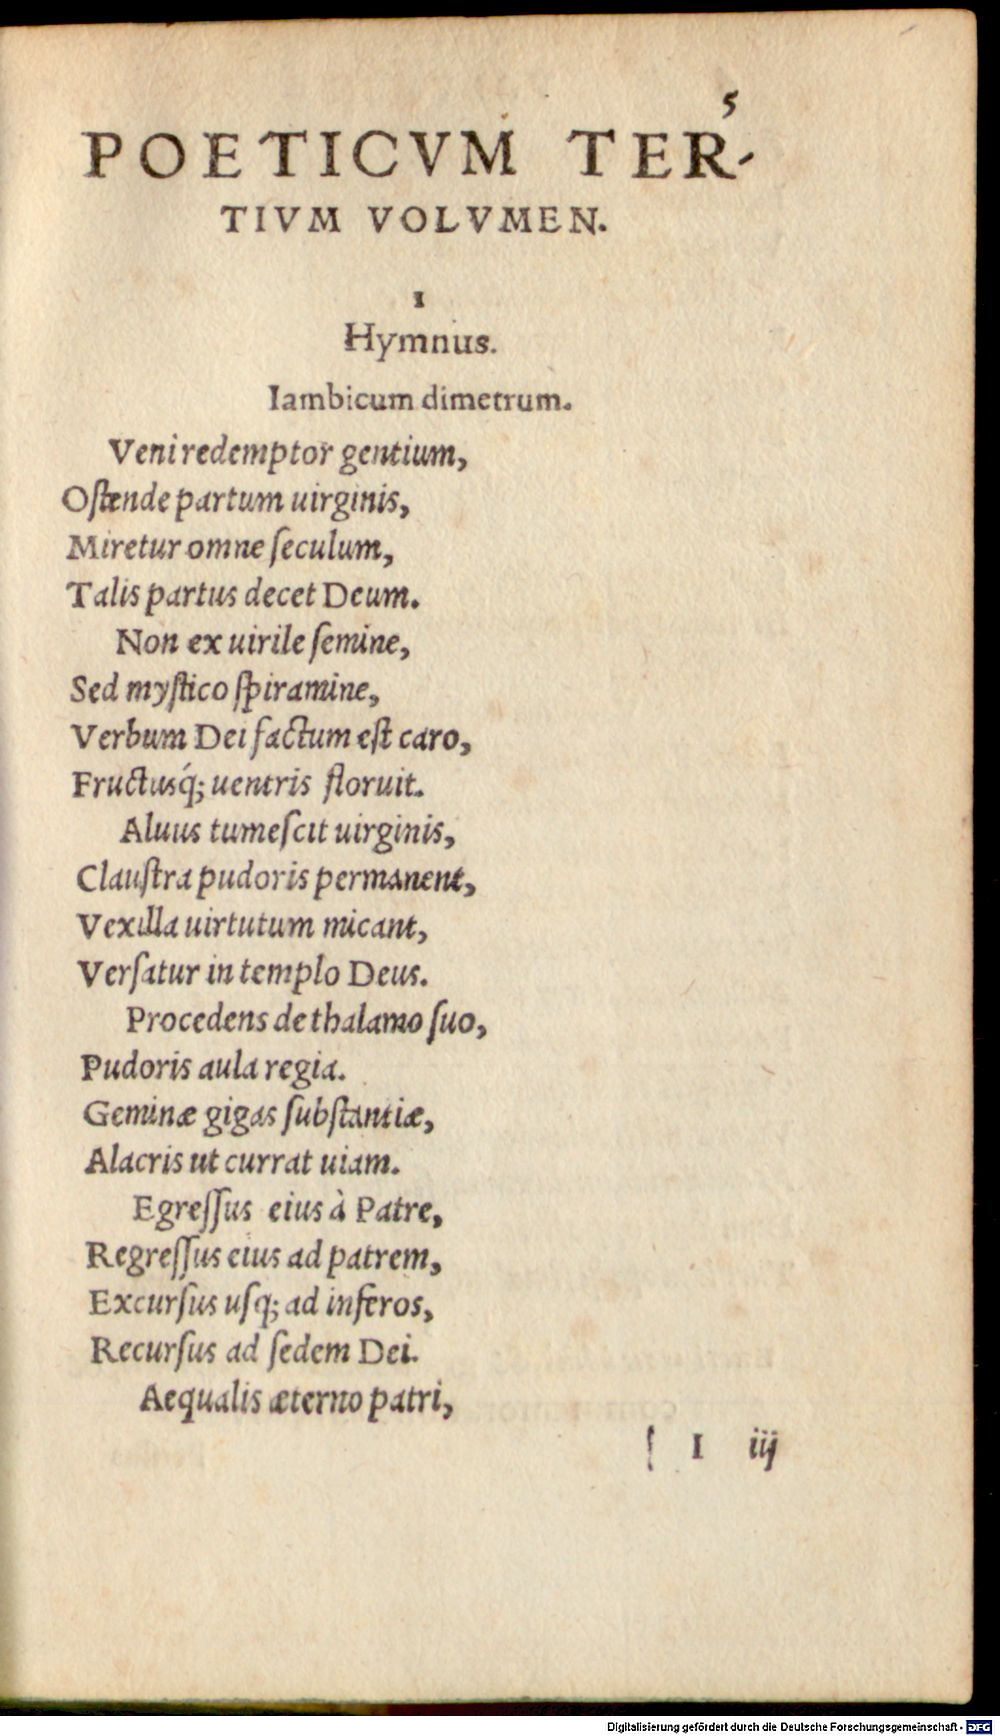 5
POETICVM TER-
TIVM VOLVMEN.
1
Hymnus.
Iambicum dimetrum.
Veni redemptor gentium,
Oſtende partum uirginis,
Miretur omne ſeculum,
Talis partus decet Deum.
Non ex uirile ſemine,
Sed myſtico ſpiramine,
Verbum Dei factum eſt caro,
Fructusq́; uentris floruit.
Aluus tumeſcit uirginis,
Clauſtra pudoris permanent,
Vexilla uirtutum micant,
Verſatur in templo Deus.
Procedens de thalamo ſuo,
Pudoris aula regia.
Geminæ gigas ſubſtantiæ,
Alacris ut currat uiam.
Egreſſus eius à Patre,
Regreſſus eius ad patrem,
Excurſus uſq; ad inferos,
Recurſus ad ſedem Dei.
Aequalis æterno patri,
ſ 1 iij
Digitalisierung gefördert durch die Deutsche Forschungsgemeinschaft - DFG